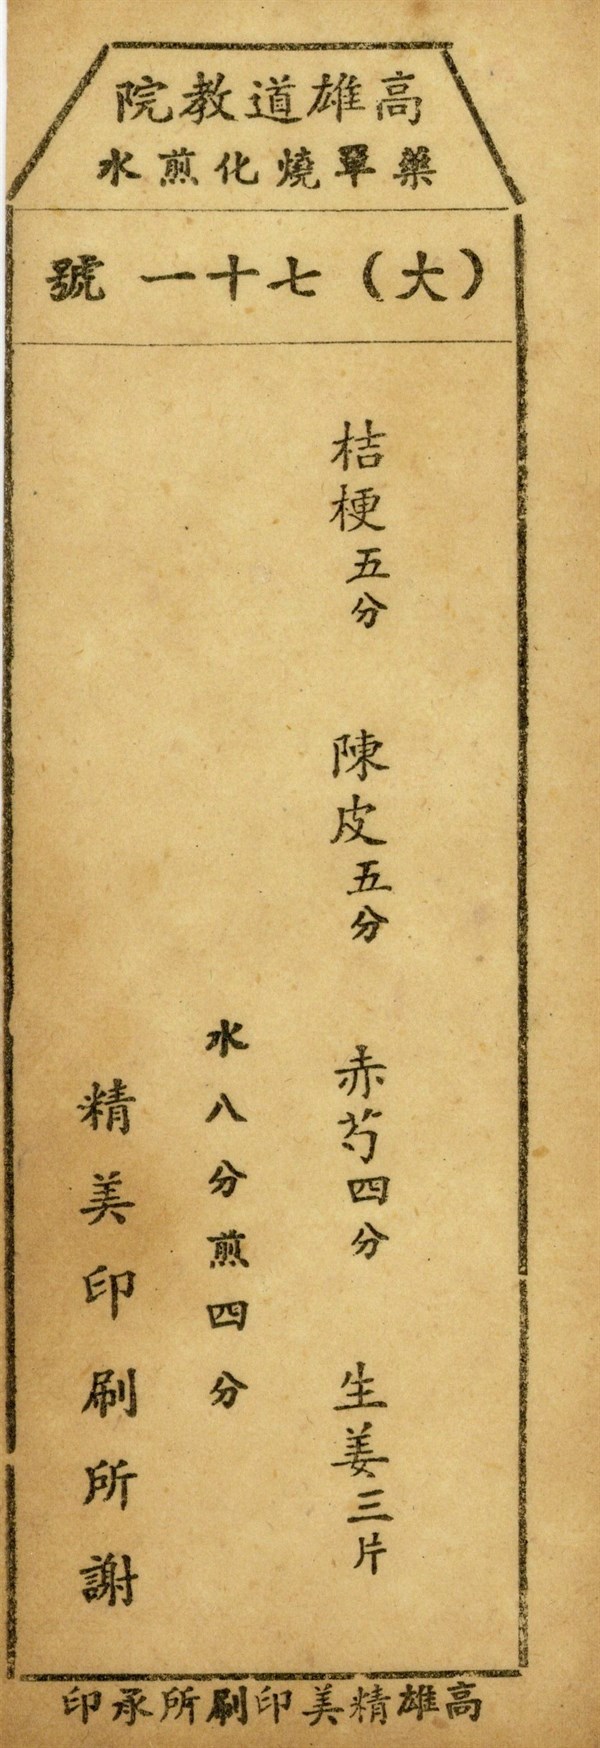 高雄道教院
藥單燒化煎水
（大）七十一號
桔梗五分 陳皮五分 赤芍四分 生姜三片
水八分煎四分
精美印刷所謝
高雄精美印刷所承印